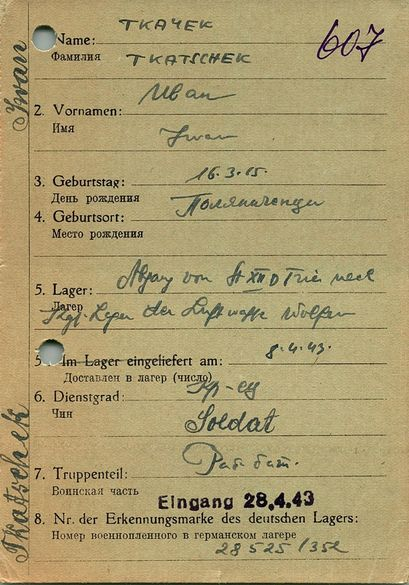 ТКАЧЕК
Name:
607
Фамилия
TKATSCHEK
Иван
2. Vornamen:
Имя
Iwan
3. Geburtstag: 16.3.15.
День рождения
4. Geburtsort:
Место рождения
Abgang von St XII D Trier nach
5. Lager:
Лагер
Kgf. Lager der Luftwaffe Wolfen
5. Im Lager eingeliefert am: 8.4.43.
Доставлен в лагер (число)
6. Dienstgrad: Кр-ец
Чин
Soldat
7. Truppenteil: Раб. бат.
Воинская часть
Eingang 28.4.43
8. Nr. der Erkennungsmarke des deutschen Lagers:
Номер военнопленного в германском лагере
28525/352
Tkatschek Iwan